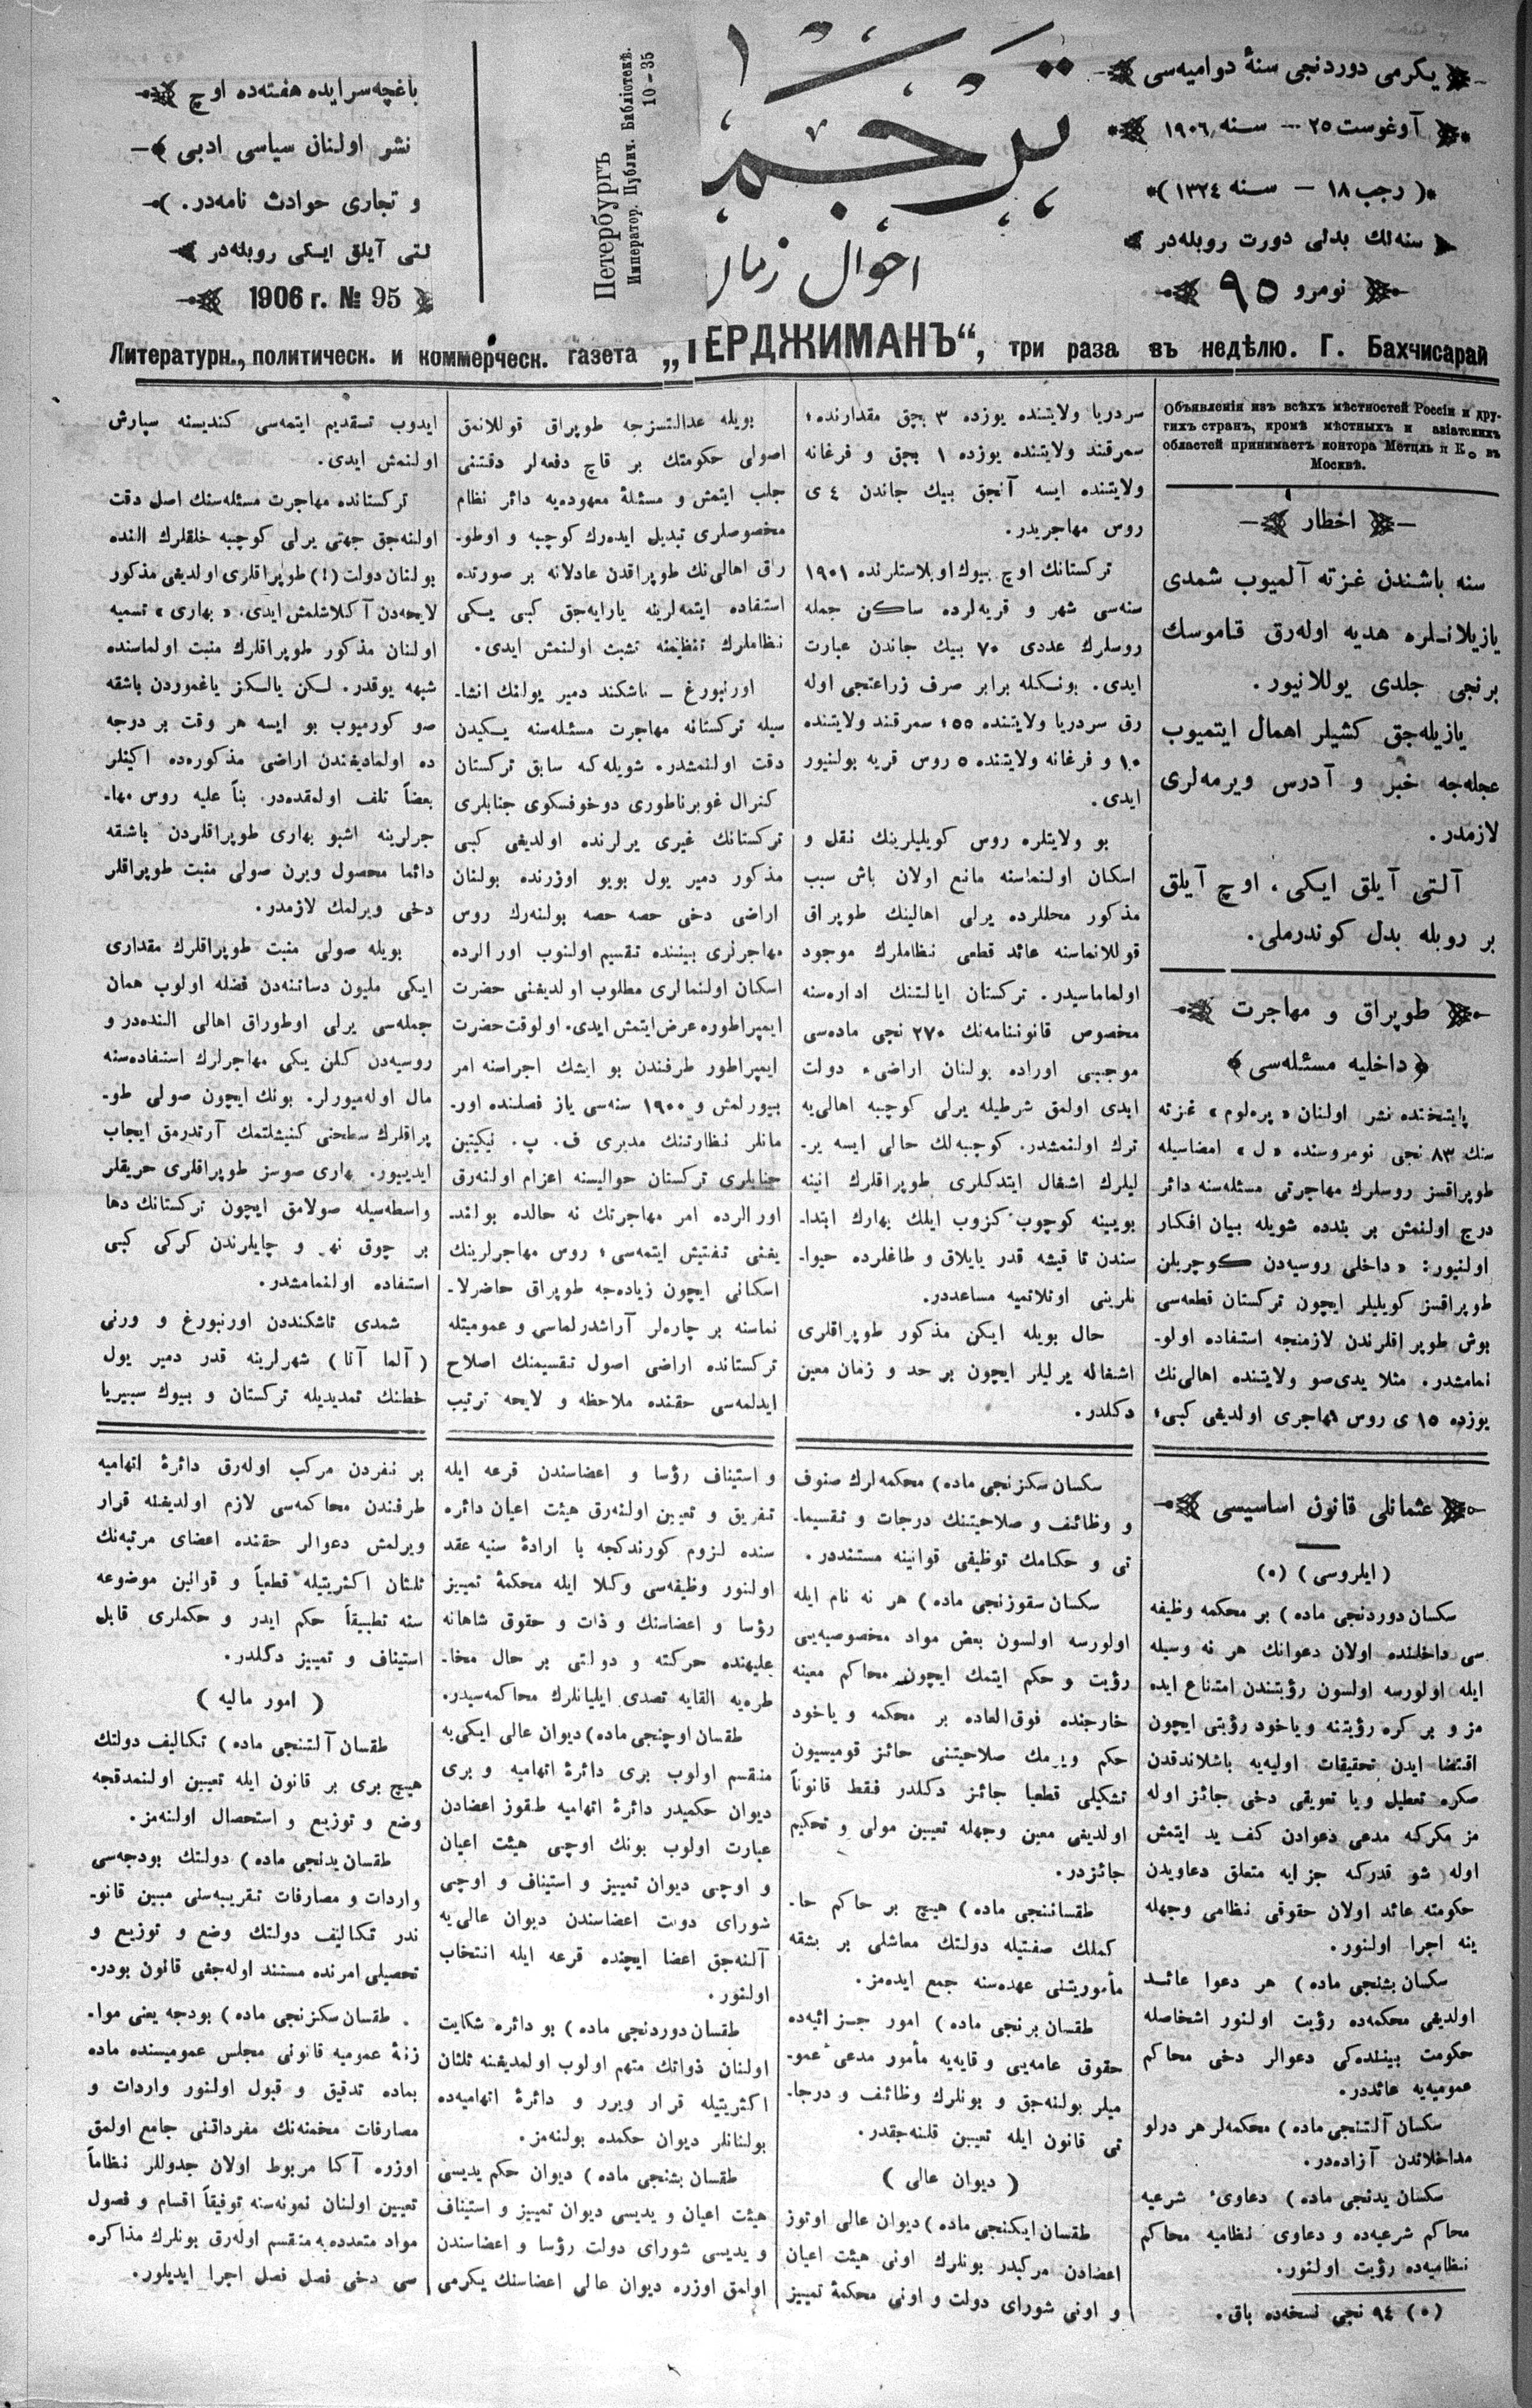 يكرمى دوردنجى سنهٔ دواميه‌سى
آوغوست ٢٥ — سنه ١٩٠٦
( رجب ١٨ — سنه ١٣٢٤ )
سنه‌لك بدلى دورت روبله‌در
نومرو ٩٥
ترجمان
احوال زمان
Петербургъ
Император. Публич. Библіотекѣ.
10–35
باغچه‌سرايده هفته‌ده اوچ
نشر اولنان سياسى ادبى
و تجارى حوادث نامه‌در.
لتى آيلق ايكى روبله‌در
1906 г. № 95
Литературн., политическ. и коммерческ. газета „ТЕРДЖИМАНЪ“, три раза въ недѣлю. Г. Бахчисарай
Объявленія изъ всѣхъ мѣстностей Россіи и дру-
гихъ странъ, кромѣ мѣстныхъ и азіатскихъ
областей принимаетъ контора Метцль и Ко въ
Москвѣ.
اخطار
سنه باشندن غزته آلميوب شمدى
يازيلانلره هديه اوله‌رق قاموسك
برنجى جلدى يوللانيور.
يازيله‌جق كشيلر اهمال ايتميوب
عجله‌جه خبر و آدرس ويرمه‌لرى
لازمدر.
آلتى آيلق ايكى، اوچ آيلق
بر روبله بدل كوندرملى.
طوپراق و مهاجرت
﴿ داخليه مسئله‌سى ﴾
پايتختده نشر اولنان « پره‌لوم » غزته
سنك ٨٣ نجى نومروسنده « ل » امضاسيله
طوپراقسز روسلرك مهاجرتى مسئله‌سنه دائر
درج اولنمش بر بندده شويله بيان افكار
اولنيور: « داخلى روسيه‌دن كوچريلن
طوپراقسز كويليلر ايچون تركستان قطعه‌سى
بوش طوپراقلرندن لازمنجه استفاده اولو-
نمامشدر. مثلا يدى‌صو ولايتنده اهالى‌نك
يوزده ١٥ ى روس مهاجرى اولديغى كبى؛
سردريا ولايتنده يوزده ٣ بچق مقدارنده؛
سمرقند ولايتنده يوزده ١ بچق و فرغانه
ولايتنده ايسه آنجق بيك جاندن ٤ ى
روس مهاجريدر.
تركستانك اوچ بيوك اوبلاستلرنده ١٩٠١
سنه‌سى شهر و قريه‌لرده ساكن جمله
روسلرك عددى ٧٠ بيك جاندن عبارت
ايدى. بونكله برابر صرف زراعتجى اوله
رق سردريا ولايتنده ٥٥؛ سمرقند ولايتنده
١٠ و فرغانه ولايتنده ٥ روس قريه بولنيور
ايدى.
بو ولايتلره روس كويليلرينك نقل و
اسكان اولنماسنه مانع اولان باش سبب
مذكور محللرده يرلى اهالينك طوپراق
قوللانماسنه عائد قطعى نظاملرك موجود
اولماماسيدر. تركستان ايالتنك اداره‌سنه
مخصوص قانوننامه‌نك ٢٧٠ نجى ماده‌سى
موجبى اوراده بولنان اراضىء دولت
ابدى اولمق شرطيله يرلى كوچبه اهالى‌يه
ترك اولنمشدر. كوچبه‌لك حالى ايسه ير-
ليلرك اشغال ايتدكلرى طوپراقلرك انينه
بويينه كوچوب كزوب ايلك بهارك ابتدا-
سندن تا قيشه قدر يايلاق و طاغلرده حيوا-
نلرينى اوتلاتميه مساعددر.
حال بويله ايكن مذكور طوپراقلرى
اشغاله يرليلر ايچون بر حد و زمان معين
دكلدر.
بويله عدالتسزجه طوپراق قوللانمق
اصولى حكومتك بر قاچ دفعه‌لر دقتنى
جلب ايتمش و مسئلهٔ معهوده‌يه دائر نظام
مخصوصلرى تبديل ايده‌رك كوچبه و اوطو-
راق اهالى‌نك طوپراقدن عادلانه بر صورتده
استفاده ايتمه‌لرينه يارايه‌جق كبى يكى
نظاملرك تنظيمنه تشبث اولنمش ايدى.
اورنبورغ — تاشكند دمير يولنك انشا-
سيله تركستانه مهاجرت مسئله‌سنه يكيدن
دقت اولنمشدر. شويله‌كه سابق تركستان
كنرال غوبرناطورى دوخوفسكوى جنابلرى
تركستانك غيرى يرلرنده اولديغى كبى
مذكور دمير يول بويو اوزرنده بولنان
اراضى دخى حصه حصه بولنه‌رك روس
مهاجرلرى بيننده تقسيم اولنوب اورالرده
اسكان اولنمالرى مطلوب اولديغنى حضرت
ايمپراطوره عرض ايتمش ايدى. اولوقت حضرت
ايمپراطور طرفندن بو ايشك اجراسنه امر
بيورلمش و ١٩٠٠ سنه‌سى ياز فصلنده اور-
مانلر نظارتنك مديرى ف. پ. نيكيتين
جنابلرى تركستان حواليسنه اعزام اولنه‌رق
اورالرده امر مهاجرتك نه حالده بولند-
يغنى تفتيش ايتمه‌سى؛ روس مهاجرلرينك
اسكانى ايچون زياده‌جه طوپراق حاضرلا-
نماسنه بر چاره‌لر آراشدرلماسى و عموميتله
تركستانده اراضى اصول تقسيمنك اصلاح
ايدلمه‌سى حقنده ملاحظه و لايحه ترتيب
ايدوب تقديم ايتمه‌سى كنديسنه سپارش
اولنمش ايدى.
تركستانده مهاجرت مسئله‌سنك اصل دقت
اولنه‌جق جهتى يرلى كوچبه خلقلرك النده
بولنان دولت (!) طوپراقلرى اولديغى مذكور
لايحه‌دن آكلاشلمش ايدى. « بهارى » تسميه
اولنان مذكور طوپراقلرك منبت اولماسنده
شبهه يوقدر. لكن يالكز ياغموردن باشقه
صو كورميوب بو ايسه هر وقت بر درجه
ده اولماديغندن اراضىء مذكوره‌ده اكينلر
بعضاً تلف اولمقده‌در. بناً عليه روس مها-
جرلرينه اشبو بهارى طوپراقلردن باشقه
دائما محصول ويرن صولى منبت طوپراقلر
دخى ويرلمك لازمدر.
بويله صولى منبت طوپراقلرك مقدارى
ايكى مليون دساتنه‌دن فضله اولوب همان
جمله‌سى يرلى اوطوراق اهالى النده‌در و
روسيه‌دن كلن يكى مهاجرلرك استفاده‌سنه
مال اوله‌ميورلر. بونك ايچون صولى طو-
پراقلرك سطحنى كنيشلتمك آرتدرمق ايجاب
ايدييور. بهارى صوسز طوپراقلرى حريقلر
واسطه‌سيله صولامق ايچون تركستانك دها
بر چوق نهر و چايلرندن كركى كبى
استفاده اولنمامشدر.
شمدى تاشكنددن اورنبورغ و ورنى
( آلما آتا ) شهرلرينه قدر دمير يول
خطنك تمديديله تركستان و بيوك سيبيريا
عثمانلى قانون اساسيسى
( ايلروسى ) (٥)
سكسان دوردنجى ماده) بر محكمه وظيفه
سى داخلنده اولان دعوانك هر نه وسيله
ايله اولورسه اولسون رؤيتندن امتناع ايده
مز و بر كره رؤيتنه وياخود رؤيتى ايچون
اقتضا ايدن تحقيقات اوليه‌يه باشلاندقدن
صكره تعطيل ويا تعويقى دخى جائز اوله
مز مكركه مدعى دعوادن كف يد ايتمش
اوله شو قدركه جزايه متعلق دعاويدن
حكومته عائد اولان حقوقى نظامى وجهله
ينه اجرا اولنور.
سكسان بشنجى ماده) هر دعوا عائد
اولديغى محكمه‌ده رؤيت اولنور اشخاصله
حكومت بيننده‌كى دعوالر دخى محاكم
عموميه‌يه عائددر.
سكسان آلتنجى ماده) محكمه‌لر هر درلو
مداخلاتدن آزاده‌در.
سكسان يدنجى ماده) دعاوىٔ شرعيه
محاكم شرعيه‌ده و دعاوى نظاميه محاكم
نظاميه‌ده رؤيت اولنور.
(٥) ٩٤ نجى نسخه‌ده باق.
سكسان سكزنجى ماده) محكمه‌لرك صنوف
و وظائف و صلاحيتنك درجات و تقسيما-
تى و حكامك توظيفى قوانينه مستنددر.
سكسان سقوزنجى ماده) هر نه نام ايله
اولورسه اولسون بعض مواد مخصوصه‌يى
رؤيت و حكم ايتمك ايچون محاكم معينه
خارجنده فوق‌العاده بر محكمه و ياخود
حكم ويرمك صلاحيتنى حائز قوميسيون
تشكيلى قطعيا جائز دكلدر فقط قانوناً
اولديغى معين وجهله تعيين مولى و تحكيم
جائزدر.
طقساننجى ماده) هيچ بر حاكم حا-
كملك صفتيله دولتك معاشلى بر بشقه
مأموريتنى عهده‌سنه جمع ايده‌مز.
طقسان برنجى ماده) امور جزائيه‌ده
حقوق عامه‌يى وقايه‌يه مأمور مدعىٔ عمو-
ميلر بولنه‌جق و بونلرك وظائف و درجا-
تى قانون ايله تعيين قلنه‌جقدر.
( ديوان عالى )
طقسان ايكنجى ماده) ديوان عالى اوتوز
اعضادن مركبدر بونلرك اونى هيئت اعيان
و اونى شوراى دولت و اونى محكمهٔ تمييز
و استيناف رؤسا و اعضاسندن قرعه ايله
تفريق و تعيين اولنه‌رق هيئت اعيان دائره
سنده لزوم كورندكجه با ارادهٔ سنيه عقد
اولنور وظيفه‌سى وكلا ايله محكمهٔ تمييز
رؤسا و اعضاسنك و ذات و حقوق شاهانه
عليهنده حركته و دولتى بر حال مخا-
طره‌يه القايه تصدى ايليانلرك محاكمه‌سيدر.
طقسان اوچنجى ماده) ديوان عالى ايكى‌يه
منقسم اولوب برى دائرهٔ اتهاميه و برى
ديوان حكميدر دائرهٔ اتهاميه طقوز اعضادن
عبارت اولوب بونك اوچى هيئت اعيان
و اوچى ديوان تمييز و استيناف و اوچى
شوراى دولت اعضاسندن ديوان عالى‌يه
آلنه‌جق اعضا ايچنده قرعه ايله انتخاب
اولنور.
طقسان دوردنجى ماده) بو دائره شكايت
اولنان ذواتك متهم اولوب اولمديغنه ثلثان
اكثريتيله قرار ويرر و دائرهٔ اتهاميه‌ده
بولنانلر ديوان حكمده بولنه‌مز.
طقسان بشنجى ماده) ديوان حكم يديسى
هيئت اعيان و يديسى ديوان تمييز و استيناف
و يديسى شوراى دولت رؤسا و اعضاسندن
اولمق اوزره ديوان عالى اعضاسنك يكرمى
بر نفردن مركب اوله‌رق دائرهٔ اتهاميه
طرفندن محاكمه‌سى لازم اولديغنه قرار
ويرلمش دعوالر حقنده اعضاى مرتبه‌نك
ثلثان اكثريتيله قطعياً و قوانين موضوعه
سنه تطبيقاً حكم ايدر و حكملرى قابل
استيناف و تمييز دكلدر.
( امور ماليه )
طقسان آلتنجى ماده) تكاليف دولتك
هيچ برى بر قانون ايله تعيين اولنمدقجه
وضع و توزيع و استحصال اولنه‌مز.
طقسان يدنجى ماده) دولتك بودجه‌سى
واردات و مصارفات تقريبه‌سنى مبين قانو-
ندر تكاليف دولتك وضع و توزيع و
تحصيلى امرنده مستند اوله‌جغى قانون بودر.
طقسان سكزنجى ماده) بودجه يعنى موا-
زنهٔ عموميه قانونى مجلس عموميسنده ماده
بماده تدقيق و قبول اولنور واردات و
مصارفات مخمنه‌نك مفرداتنى جامع اولمق
اوزره آكا مربوط اولان جدوللر نظاماً
تعيين اولنان نمونه‌سنه توفيقاً اقسام و فصول
مواد متعدده‌يه منقسم اوله‌رق بونلرك مذاكره
سى دخى فصل فصل اجرا ايديلور.